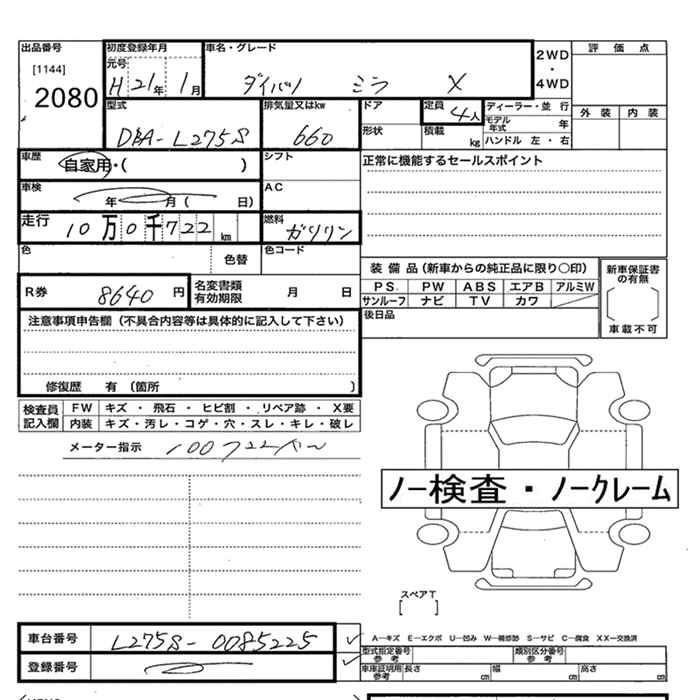 出品番号 初度登録年月 車名・グレード 2WD・4WD 評価点
[1144] 元号
2080 H21年 1月 ダイハツ ミラ X 外装 内装
型式 排気量又はkw ドア 定員 4人 ディーラー・並行
DBA-L275S 660 形状 積載 kg モデル年式 年
ハンドル 左・右
車歴 自家用・( ) シフト 正常に機能するセールスポイント
車検 年 月( 日) AC
走行 10万0千722km 燃料 ガソリン
色 色替 色コード
R券 8640円 名変書類有効期限 月 日
装備品(新車からの純正品に限り○印) 新車保証書の有無
PS PW ABS エアB アルミW
サンルーフ ナビ TV カワ
後日品 車載不可
注意事項申告欄(不具合内容等は具体的に記入して下さい)
修復歴 有(箇所 )
検査員記入欄 FW キズ・飛石・ヒビ割・リペア跡・X要
内装 キズ・汚レ・コゲ・穴・スレ・キレ・破レ
メーター指示 100722km
ノー検査・ノークレーム
スペアT
[ ]
車台番号 L275S-0085225
A—キズ E—エクボ U—凹み W—補修跡 S—サビ C—腐食 XX—交換済
登録番号 型式指定番号 参考 類別区分番号 参考
車庫証明用 参考 長さ cm 幅 cm 高さ cm